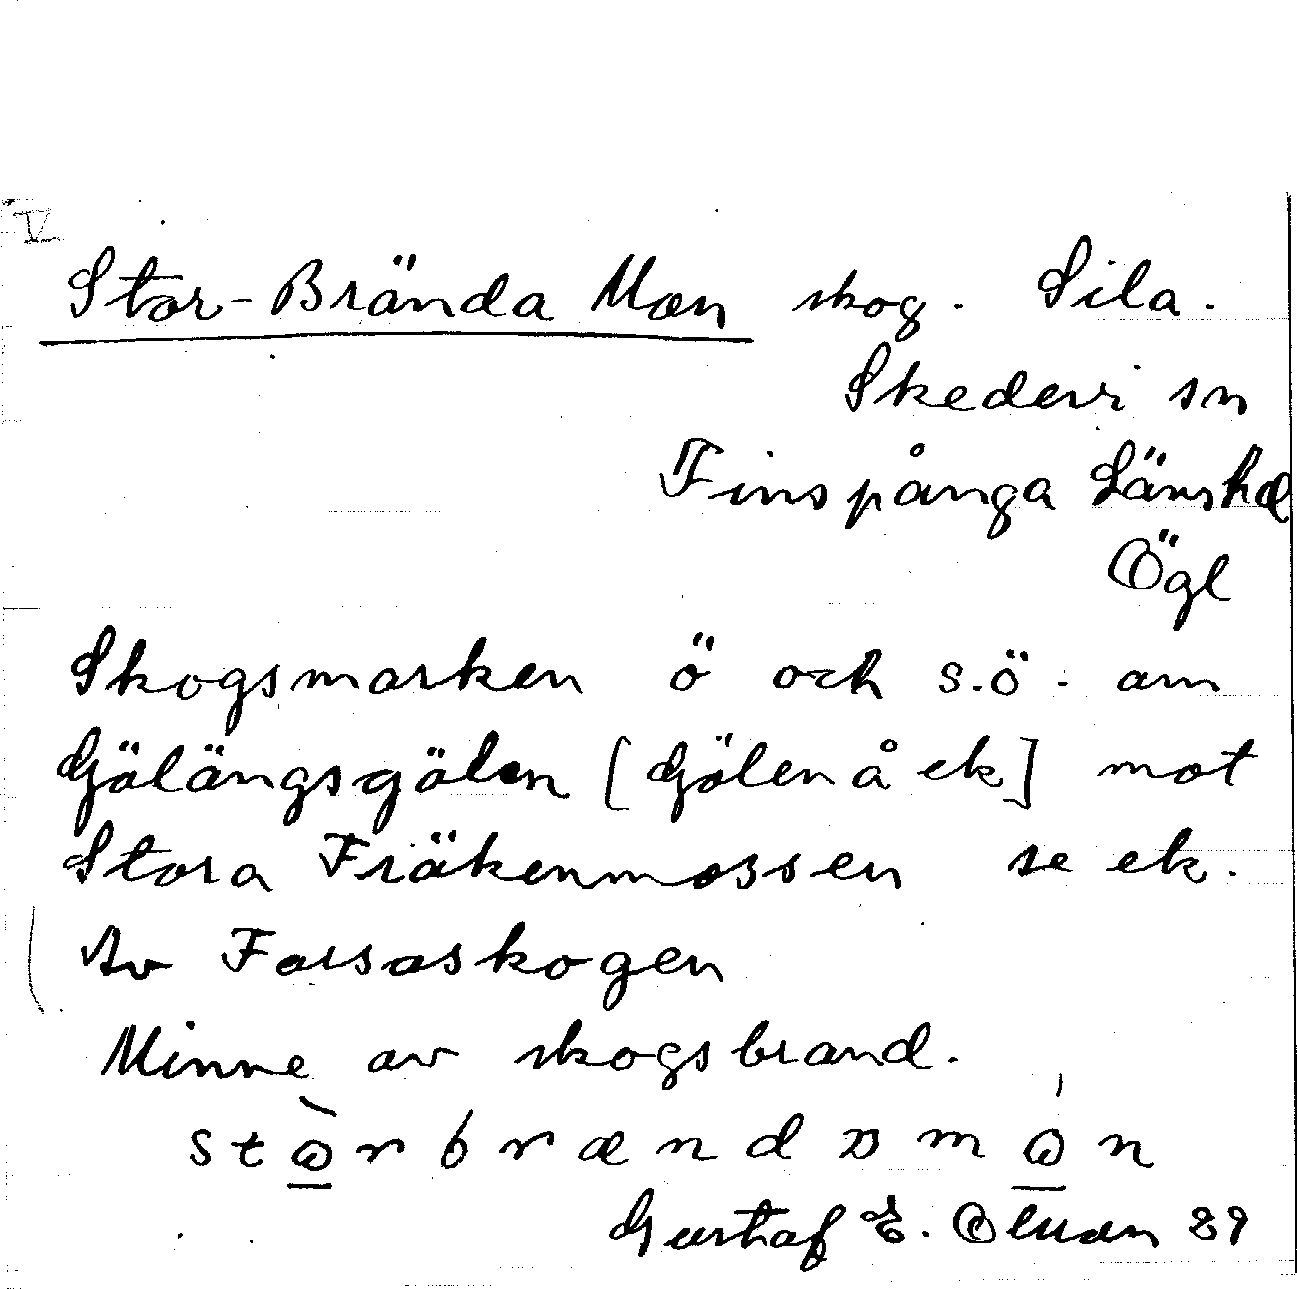 V
Stor-Brända Mon skog. Sila.
Skedevi sn
Finspånga Länshd
Ögl
Skogsmarken ö och s.ö. om
Gölängsgölen [Gölen å ek] mot
Stora Fräkenmossen se ek.
Av Forsaskogen
Minne av skogsbrand.
Gustaf E. Olsson 29